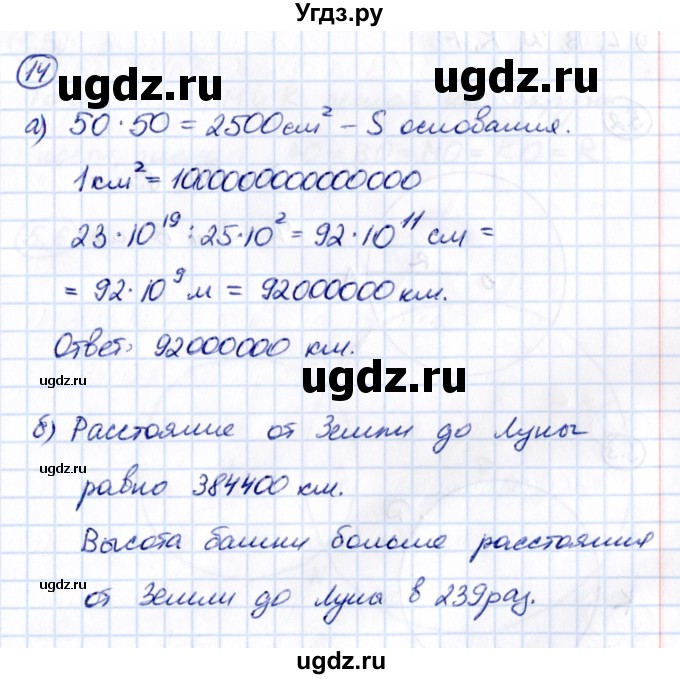 Угдз.ру
14
ugdz.ru
ugdz.ru
а) 50·50 = 2500 см² – S основания.
1 км² = 1000000000000000
23·10¹⁹ : 25·10² = 92·10¹¹ см =
= 92·10⁹ м = 92000000 км.
Ответ: 92000000 км.
ugdz.ru
ugdz.ru
ugdz.ru
б) Расстояние от Земли до Луны
равно 384400 км.
Высота башни больше расстояния
ugdz.ru
ugdz.ru
от Земли до Луны в 239 раз.
ugdz.ru